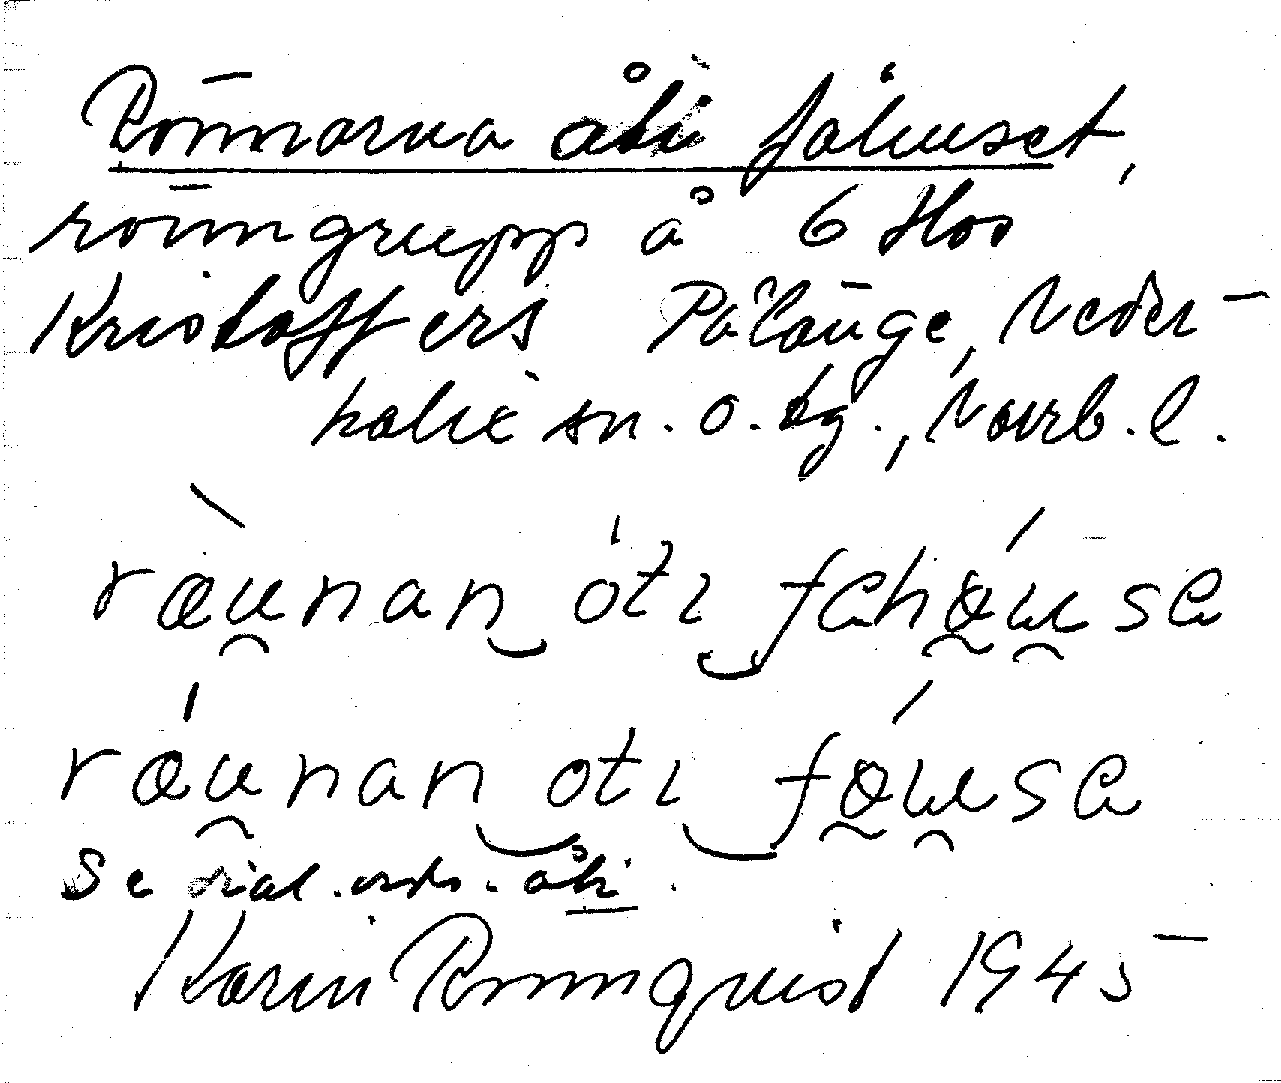 Rönnarna åti fähuset,
rönngrupp å 6 Hos
Kristoffers Pålänge, Neder-
kalix sn. o. tg., Norrb. l.
ræ̀unan óti fehǿusе
rǽunan oti fǿuse
Se dial.ords. åti.
Karin Rönnquist 1945